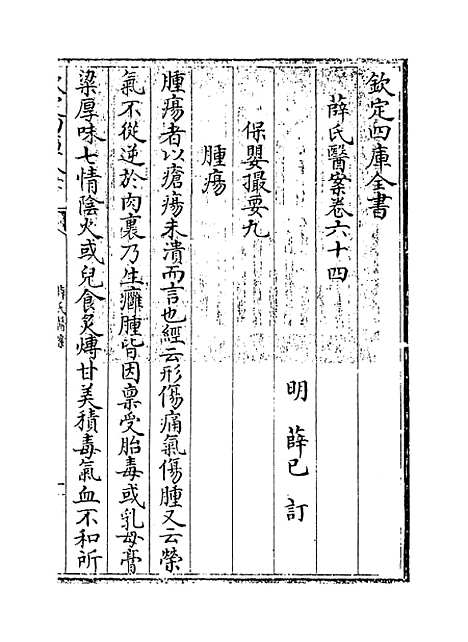 欽定四庫全書
薛氏醫案卷六十四
明 薛已 訂
保嬰撮要九
腫瘍
腫瘍者以瘡瘍未潰而言也經云形傷痛氣傷腫又云榮
氣不從逆於肉裏乃生癰腫皆因禀受胎毒或乳母膏
粱厚味七情陰火或兒食炙煿甘美積毒氣血不和所
薛氏醫案